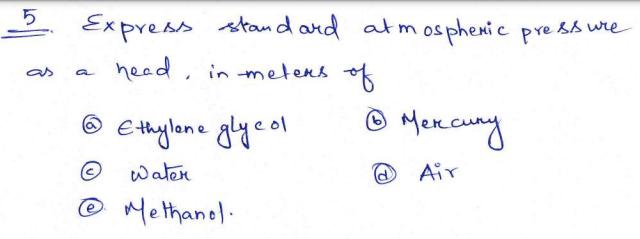 5. Express standard atmospheric pressure
as a head, in meters of
(a) Ethylene glycol (b) Mercury
(c) Water (d) Air
(e) Methanol.